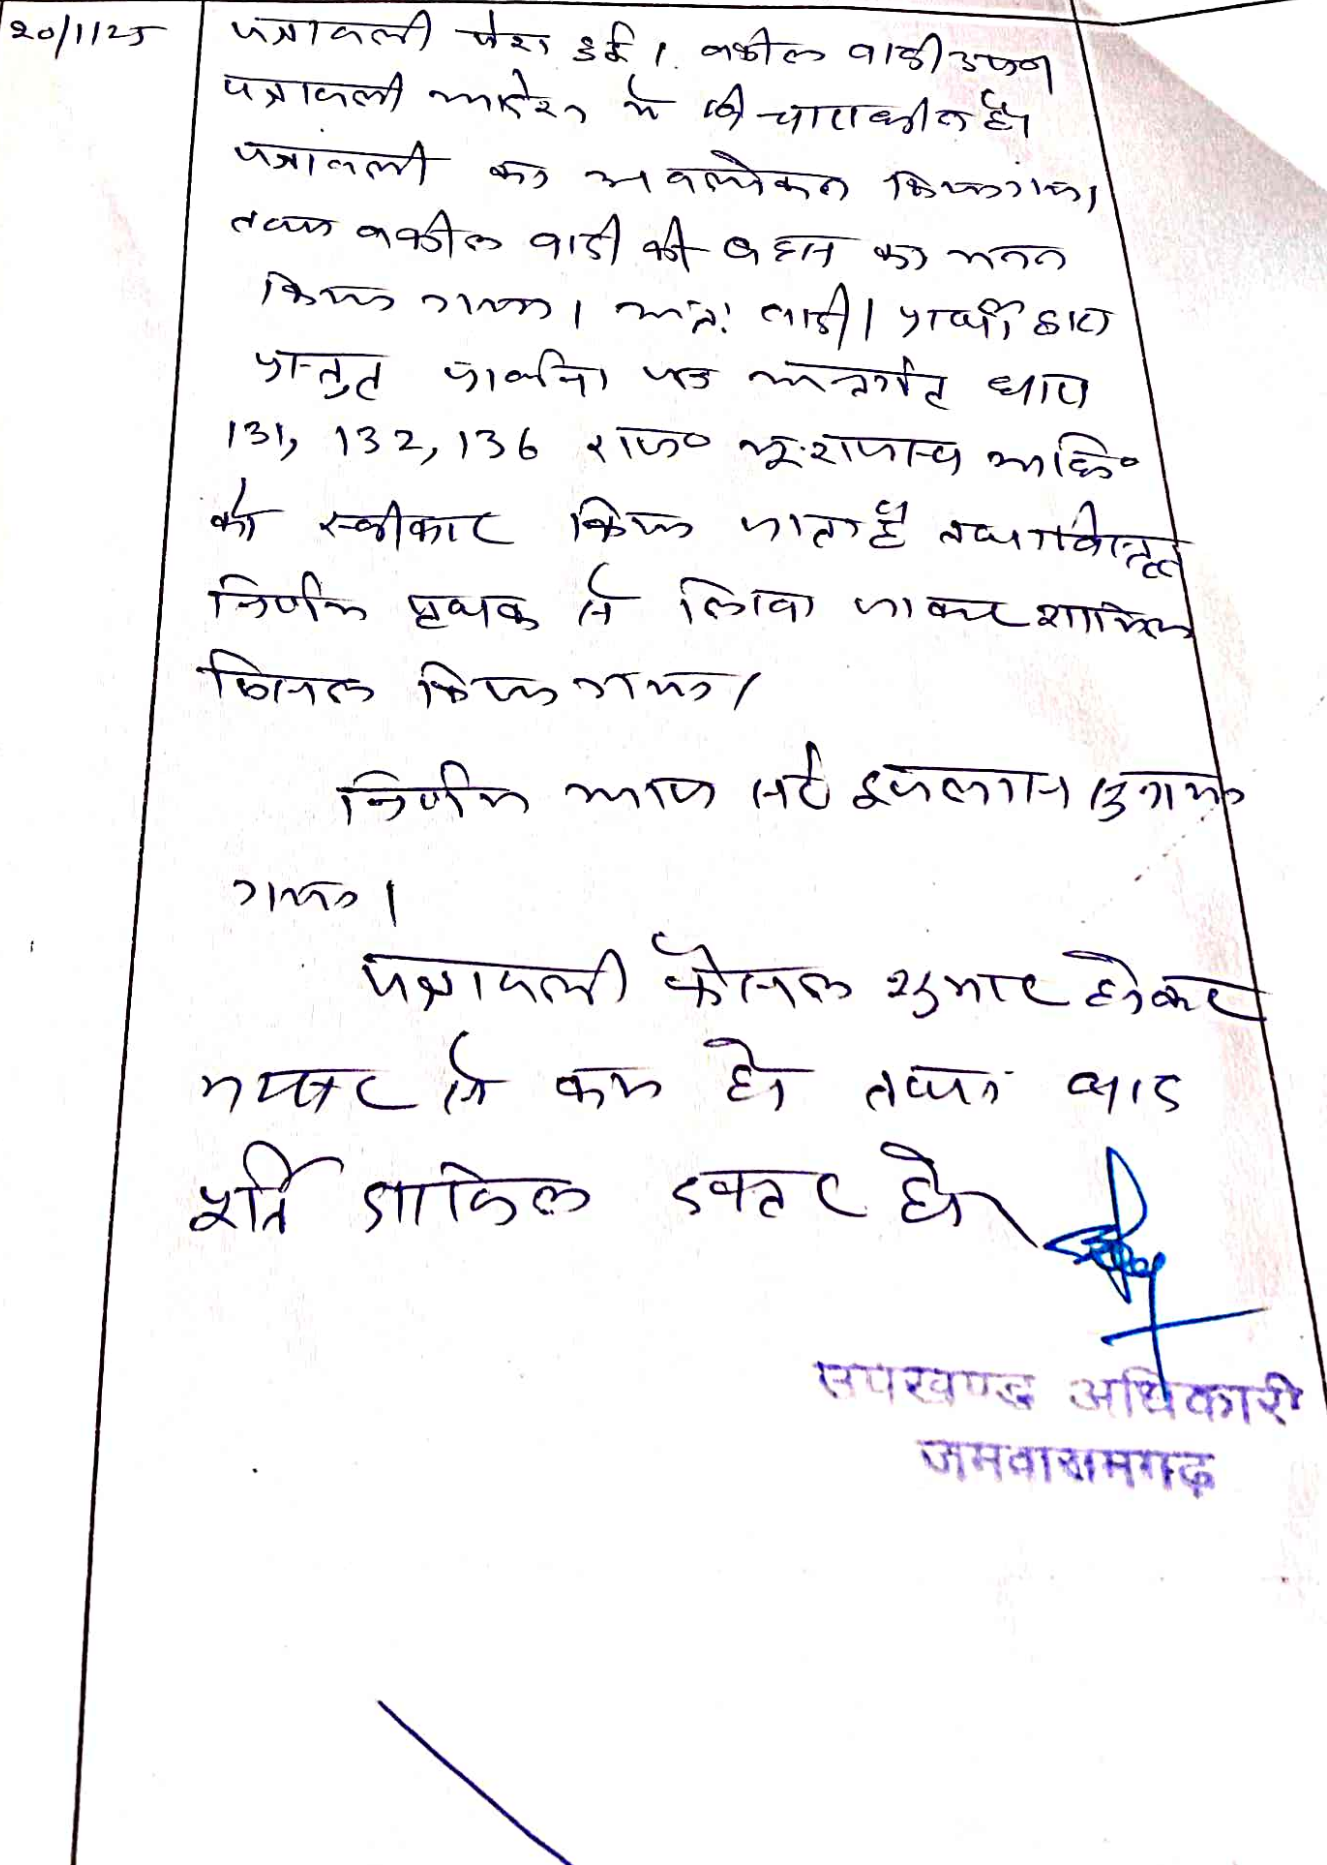 20/1/25
पत्रावली पेश हुई। वकील वादी उप०
पत्रावली आदेश में विचाराधीन है।
पत्रावली का अवलोकन किया गया।
तथा वकील वादी की बहस का मनन
किया गया। अतः वादी/प्रार्थी द्वारा
प्रस्तुत प्रार्थना पत्र अन्तर्गत धारा
131, 132, 136 राज० भू.राजस्व अधि०
को स्वीकार किया जाता है तथा विस्तृत
निर्णय पृथक से लिखा जाकर शामिल
मिसल किया गया।
निर्णय आज सरे इजलास सुनाया
गया।
पत्रावली फैसल शुमार होकर
नम्बर से कम हो तथा बाद
पूर्ति दाखिल दफ्तर हो
उपखण्ड अधिकारी
जमवारामगढ़